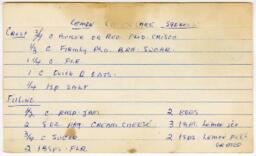 LEMON CHEESECAKE SQUARES
CRUST 3/4 C BUTTER OR REG. FLVD. CRISCO
1/3 C FIRMLY PKD. BRN. SUGAR
1 1/4 C FLR
1 C QUICK R OATS.
1/4 TSP SALT
FILLING
1/2 C RASP. JAM
2 8 OZ PKG CREAM CHEESE
3/4 C SUGAR
2 TBSPS. FLR.
2 EGGS
3 TBSPL LEMON JCE
2 TSPS LEMON PEEL
GRATED